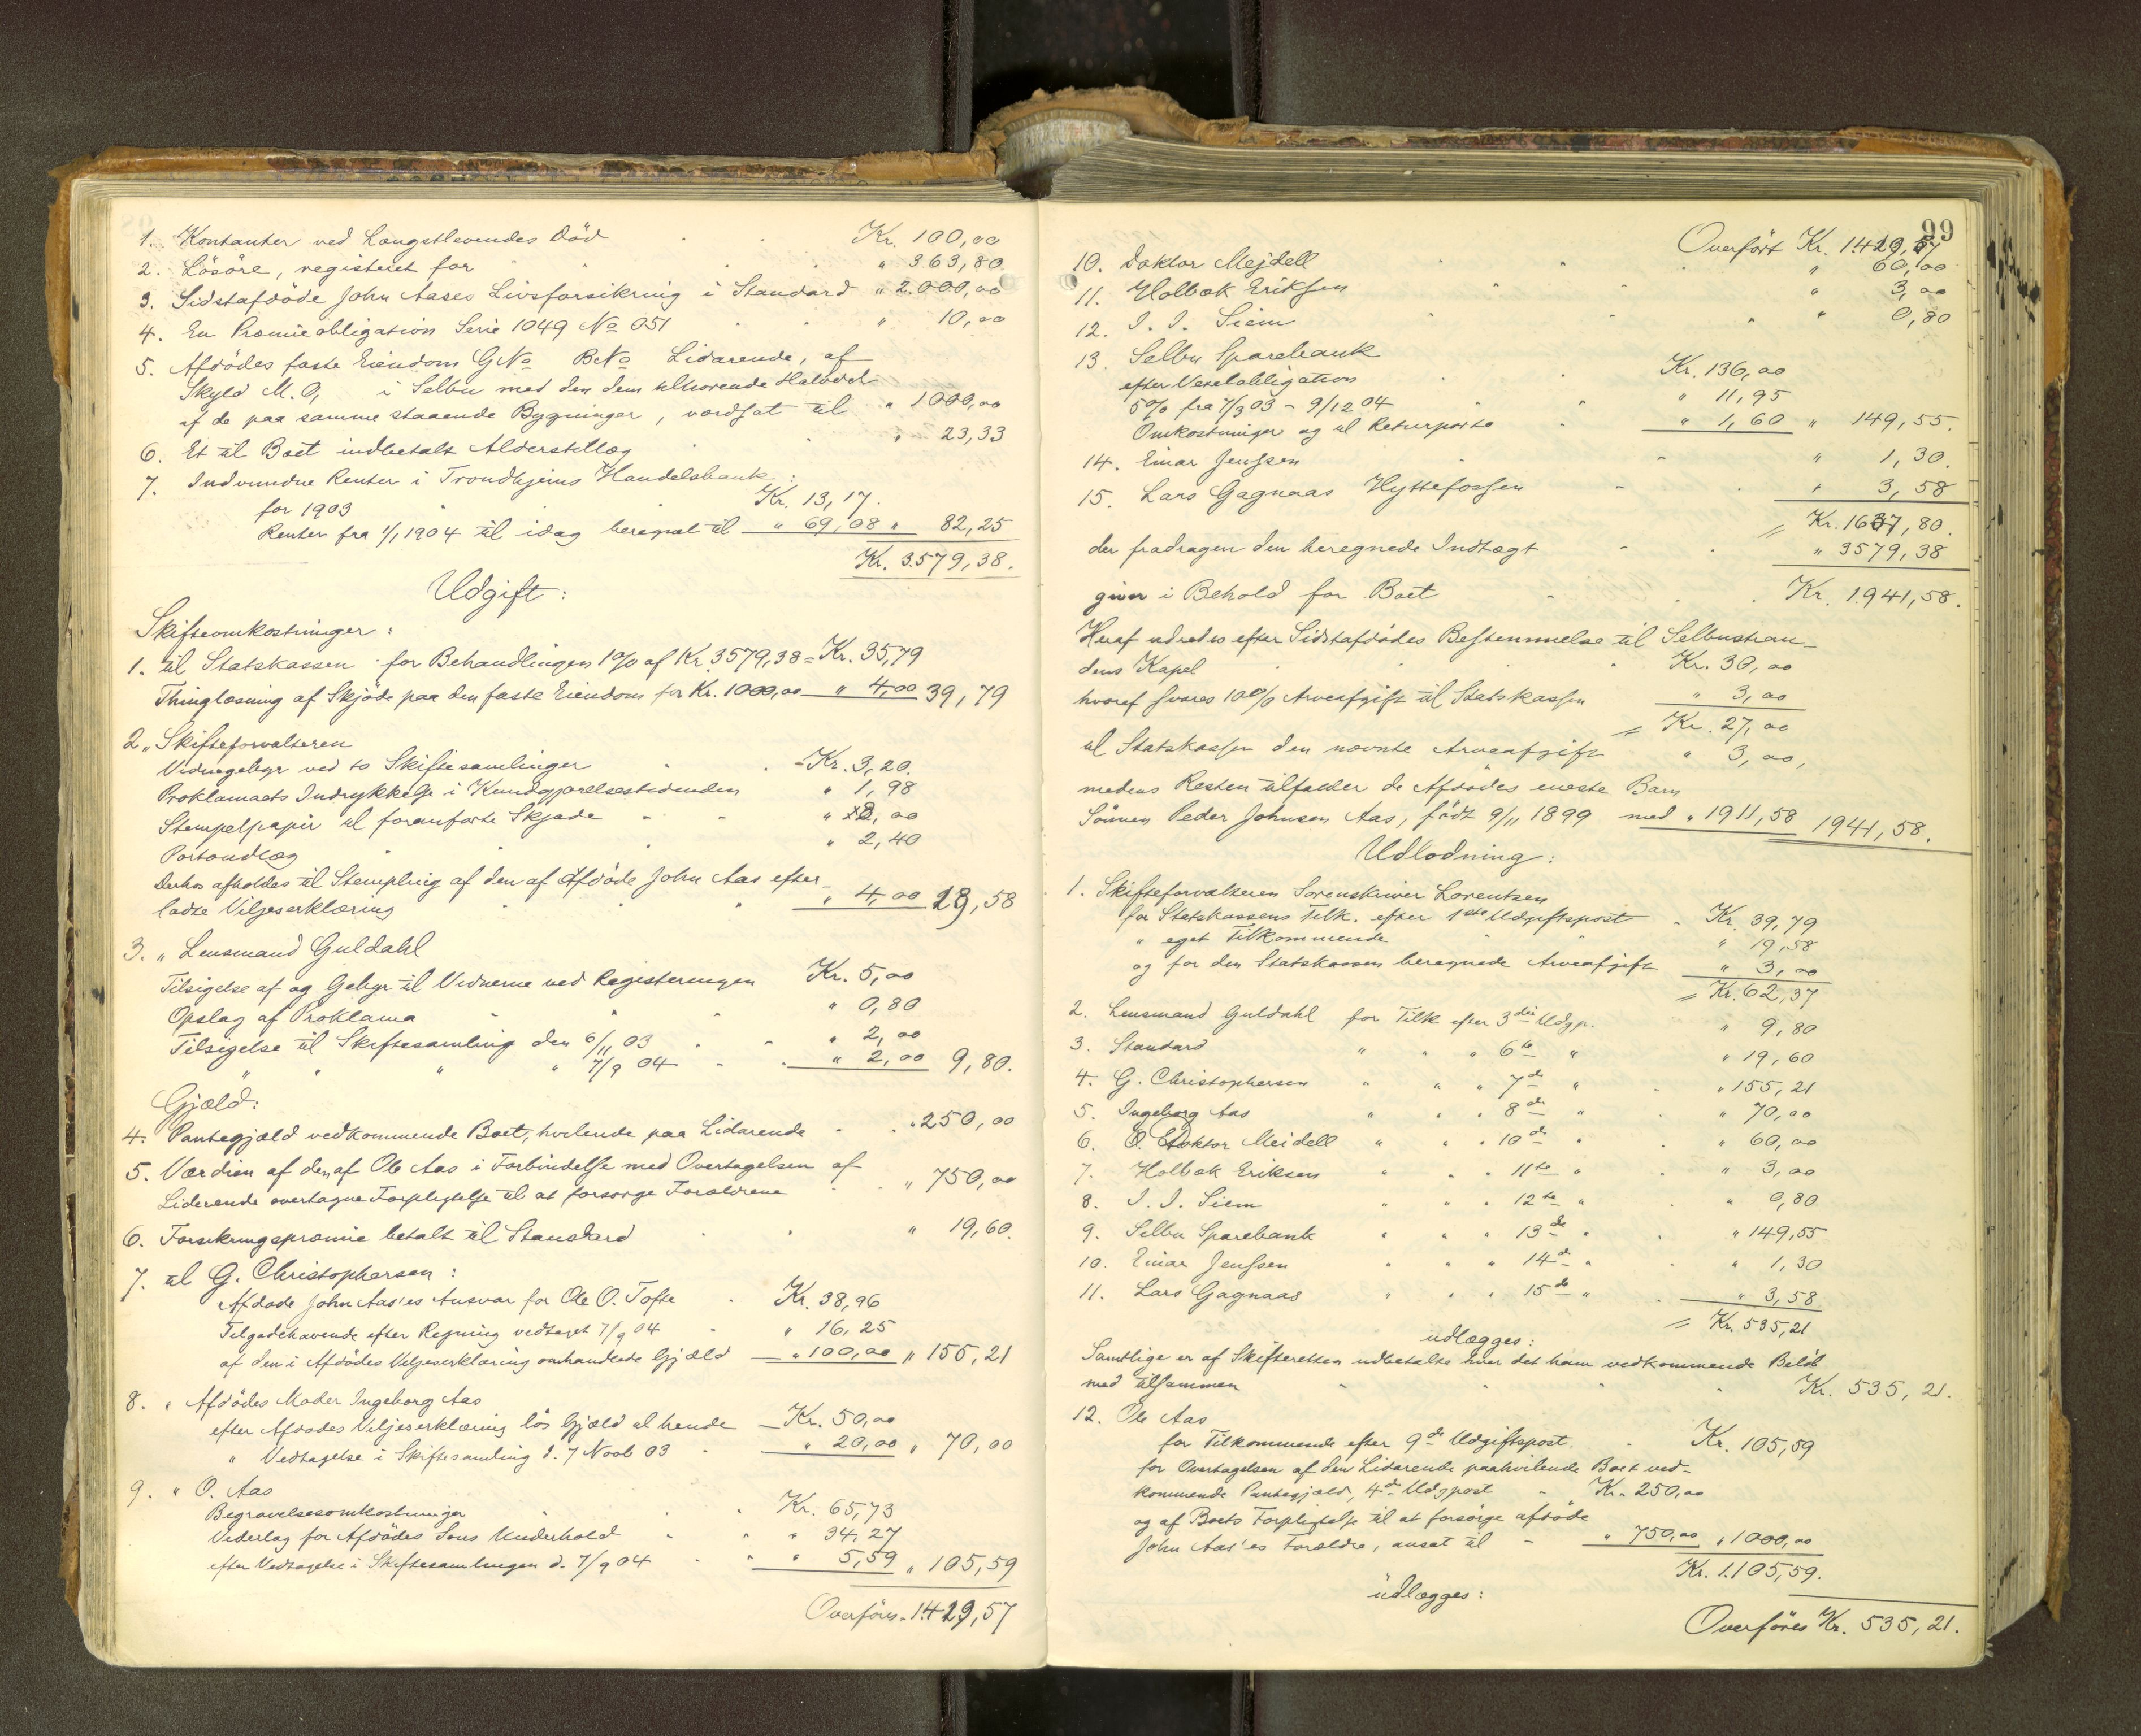 1. Kontanter ved Længstlevendes Död Kr. 100,00
2. Lösöre, registreret for " 363,80
3. Sidstafdöde John Aases Livsforsikring i Standard " 2.000,00
4. En Præmieobligation Serie 1049 No 051 " 10,00
5. Afdödes faste Eiendom GNo BNo Lidarende, af
Skyld M. 0, i Selbu med den dem tilhörende Halvdel
af de paa samme staaende Bygninger, værdsat til " 1000,00
6. Et til Boet indbetalt Alderstillæg " 23,33
7. Indvundne Renter i Trondhjems Handelsbank:
for 1903 Kr. 13,17.
Renter fra 1/1 1904 til idag beregnet til " 69,08 " 82,25
Kr. 3.579,38.
Udgift:
Skifteomkostninger:
1. til Statskassen for Behandlingen 1% af Kr. 3579,38 = Kr. 35,79
Thinglæsning af Skjöde paa den faste Eiendom for Kr. 1000,00 " 4,00 39,79
2 " Skifteforvalteren
Vidnegebyr ved to Skiftesamlinger - Kr. 3,20.
Proklamaets Indrykkelse i Kundgjørelsestidenden " 1,98
Stempelpapir til foranførte Skjøde " 8,00
Portoudlæg " 2,40
Derhos afholdes til Stempling af den af Afdöde John Aas efter-
ladte Viljeserklæring " 4,00 19,58
3. " Lensmand Guldahl
Tilsigelse af og Gebyr til Vidnerne ved Registeringen Kr. 5,00
Opslag af Proklama " 0,80
Tilsigelse til Skiftesamling den 6/11 03 " 2,00
" " " " 7/9 04 " 2,00 9,80.
Gjæld:
4. Pantegjæld vedkommende Boet, hvilende paa Lidarende " 250,00
5. Værdien af den af Ole Aas i Forbindelse med Overtagelsen af
Liderende overtagne Forpligtelse til at forsørge Forældrene " 750,00
6. Forsikringspræmie betalt til Standard " 19,60.
7. til G. Christophersen:
Afdøde John Aas'es Ansvar for Ole O. Tofte Kr. 38,96
Tilgodehavende efter Regning vedtaget 7/9 04 " 16,25
af den i Afdödes Viljeserklæring omhandlede Gjæld " 100,00 " 155,21
8. " Afdödes Moder Ingeborg Aas
efter Afdødes Viljeserklæring lös Gjæld til hende Kr. 50,00
" Vedtagelse i Skiftesamling d. 7 Novb 03 " 20,00 " 70,00
9. " O. Aas
Begravelsesomkostninger Kr. 65,73
Vederlag for Afdödes Søns Underhold " 34,27
efter Vedtagelse i Skiftesamlingen d. 7/9 04 " 5,59 " 105,59
Overføres 1429,57
99
Overført Kr. 1429,57
10. Doktor Mejdell " 60,00
11. Holbæk Eriksen " 3,00
12. I. I. Siem " 0,80
13. Selbu Sparebank
efter Vexelobligation Kr. 136,00
5% fra 7/3 03 - 9/12 04 " 11,95
Omkostninger og til Returporto " 1,60 " 149,55.
14. Einar Jenssen " 1,30.
15. Lars Gagnaas Hyttefossen " 3,58
= Kr. 1637,80.
der fradragen den beregnede Indtægt " 3579,38
giver i Behold for Boet Kr. 1.941,58.
Heraf udredes efter Sidstafdödes Bestemmelse til Selbustran-
dens Kapel Kr. 30,00
hvoraf svares 10% Arveafgift til Statskassen " 3,00
= Kr. 27,00
til Statskassen den nævnte Arveafgift " 3,00,
medens Resten tilfalder de Afdødes eneste Barn
Sönnen Peder Johnsen Aas, födt 9/11 1899 med " 1911,58 1941,58.
Udlodning:
1. Skifteforvalteren Sorenskriver Lorentzen
for Statskassens Tilk. efter 1ste Udgiftspost Kr. 39,79
" eget Tilkommende " 19,58
og for den Statskassen beregnede Arveafgift " 3,00
= Kr. 62,37
2. Lensmand Guldahl for Tilk efter 3die Udgp. " 9,80
3. Standard " " " 6te " " 19,60
4. G. Christophersen " " " 7de " " 155,21
5. Ingeborg Aas " " " 8de " " 70,00
6. Doktor Meidell " " " 10de " " 60,00
7. Holbæk Eriksen " " " 11te " " 3,00
8. I. I. Siem " " " 12te " " 0,80
9. Selbu Sparebank " " " 13de " " 149,55
10. Einar Jenssen " " " 14de " " 1,30
11. Lars Gagnaas " " " 15de " " 3,58
= Kr. 535,21
udlægges:
Samtlige er af Skifteretten udbetalte hver det ham vedkommende Beløb
med tilsammen Kr. 535,21.
12. Ole Aas
for Tilkommende efter 9de Udgiftspost Kr. 105,59
for Overtagelsen af den Lidarende paahvilende Boet ved-
kommende Pantegjæld, 4de Udgpost Kr. 250,00
og af Boets Forpligtelse til at forsørge afdøde
John Aas'es Forældre, ansat til " 750,00 " 1000,00
Kr. 1.105,59.
udlægges:
Overföres Kr. 535,21.